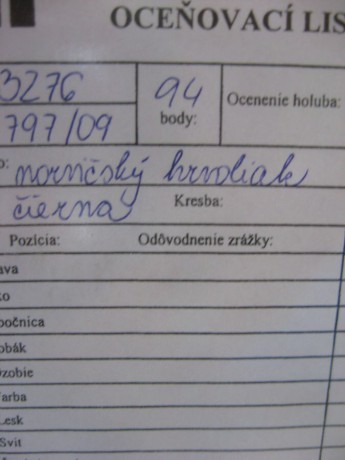 OCEŇOVACÍ LIS
3276
94
797/09
body:
Ocenenie holuba:
o: noričský hrvoliak
čierna
Kresba:
Pozícia: Odôvodnenie zrážky:
ava
ko
očnica
obák
ozobie
arba
Lesk
Svit